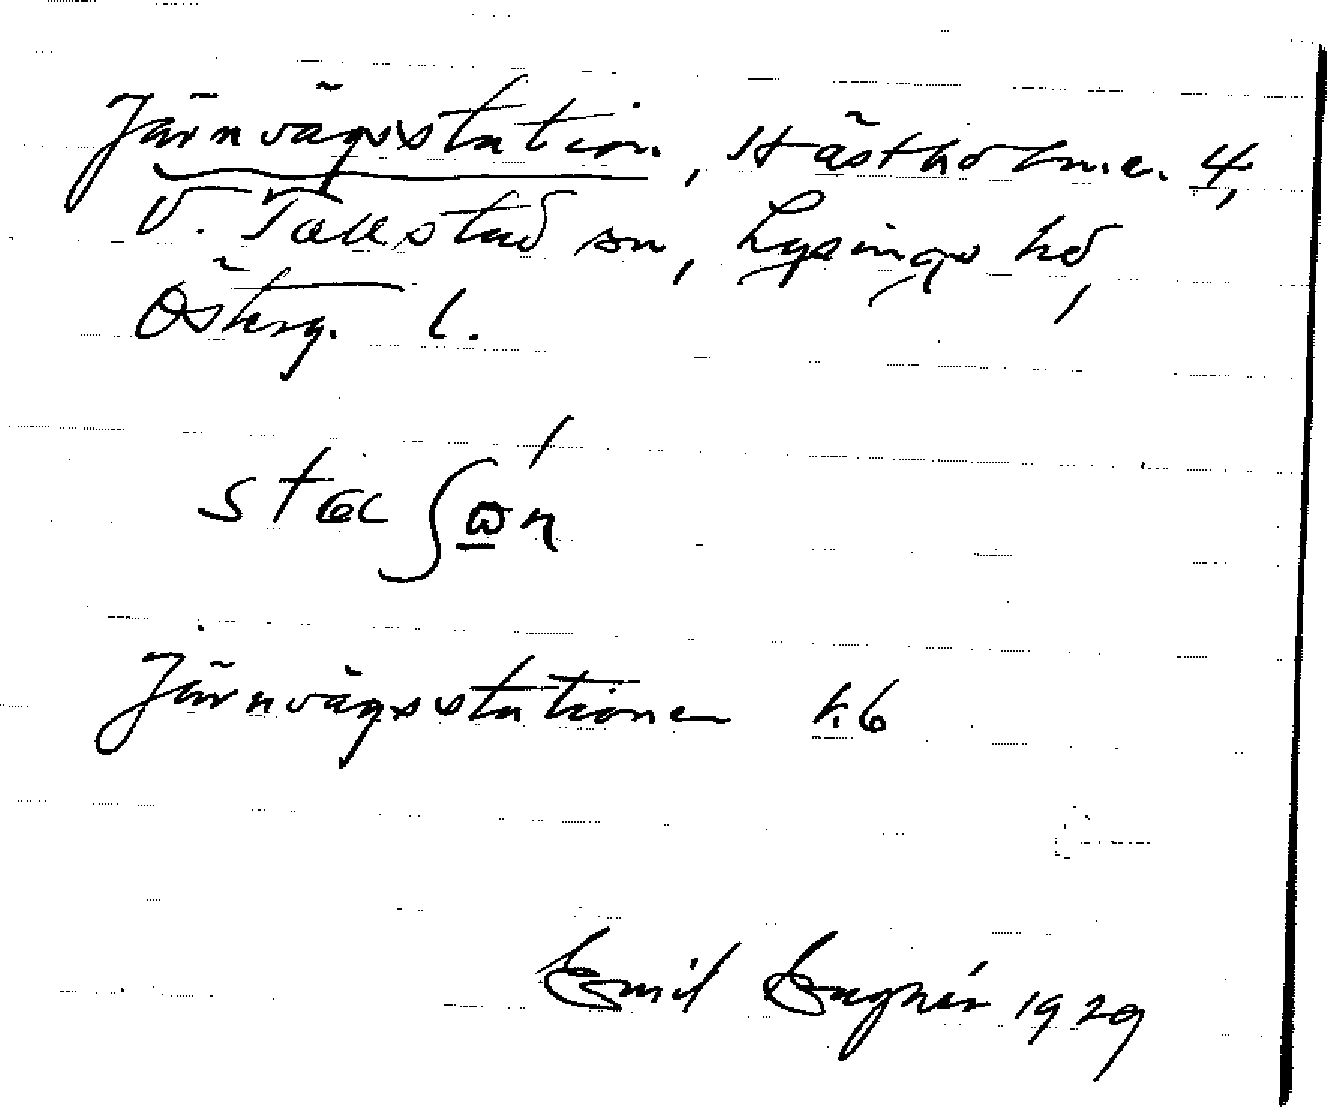 Järnvägsstation, Hästholmen 4,
V. Tollstad sn, Lysings hd,
Österg. l.
Järnvägsstationen kb
Emil Engnér 1929